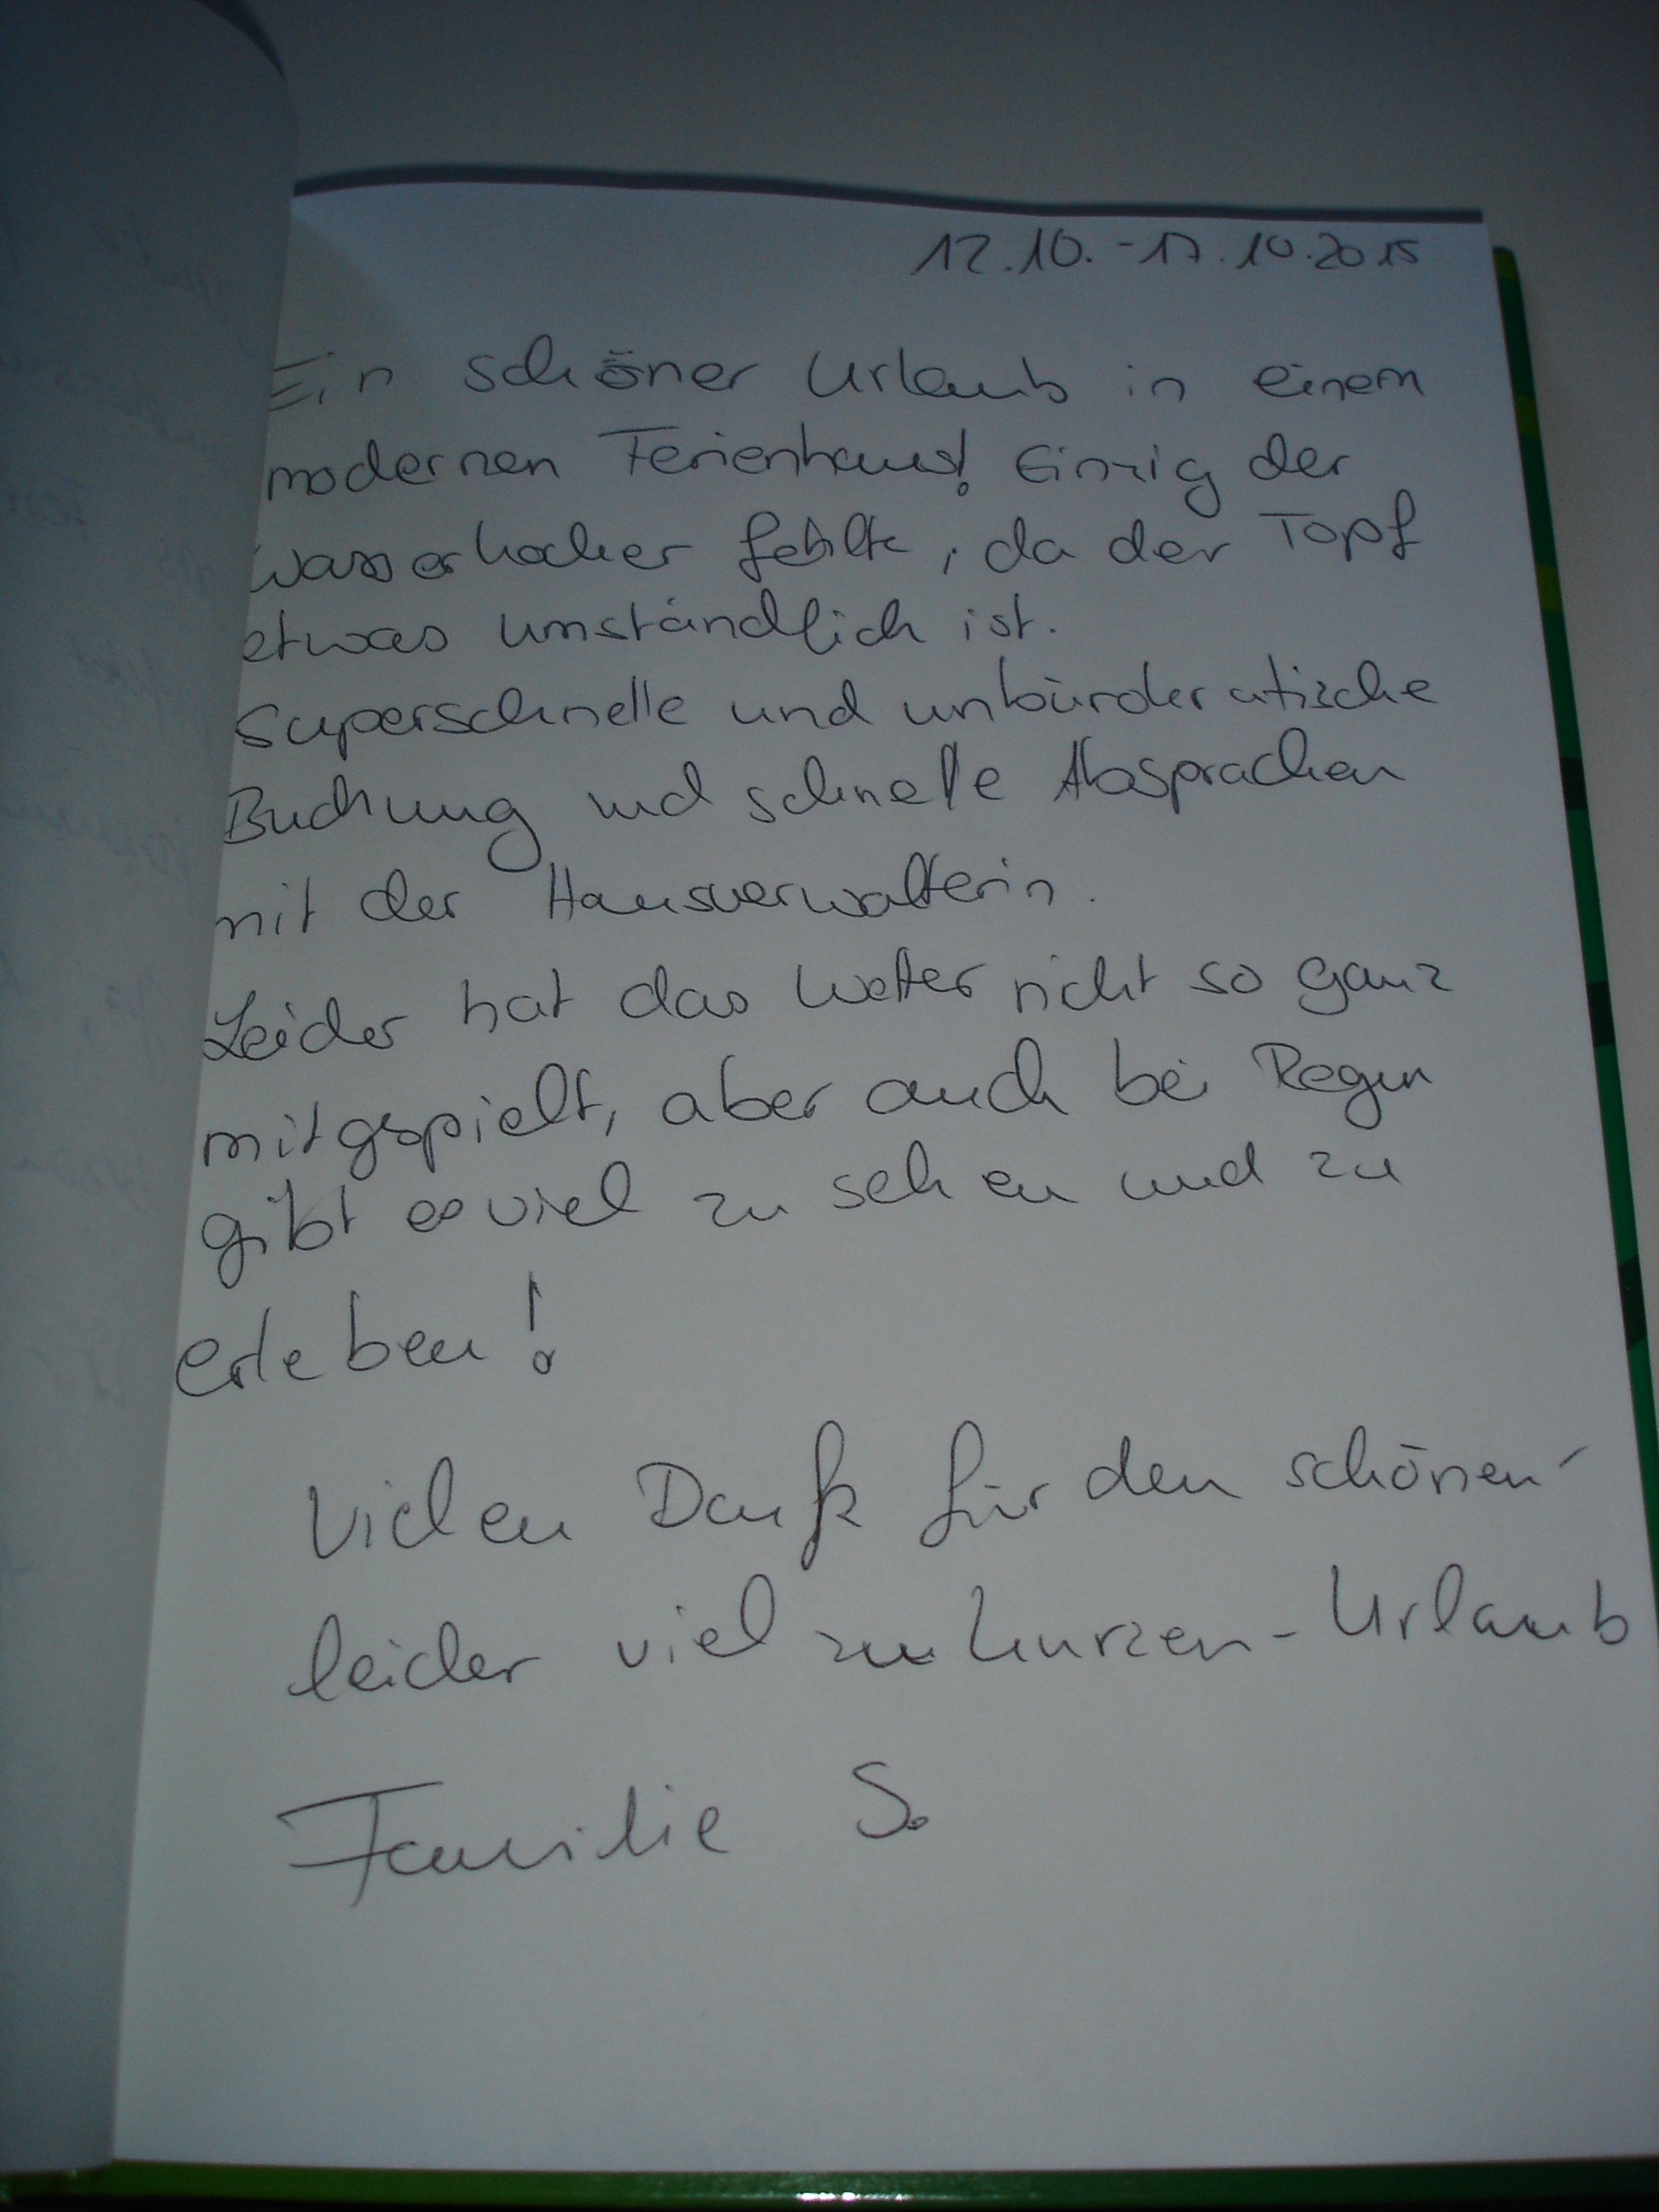 12.10.-17.10.2015
Ein schöner Urlaub in einem
modernen Ferienhaus! Einzig der
Wasserkocher fehlte, da der Topf
etwas umständlich ist.
Superschnelle und unbürokratische
Buchung und schnelle Absprachen
mit der Hausverwalterin.
Leider hat das Wetter nicht so ganz
mitgespielt, aber auch bei Regen
gibt es viel zu sehen und zu
erleben!
Vielen Dank für den schönen-
leider viel zu kurzen-Urlaub
Familie S.